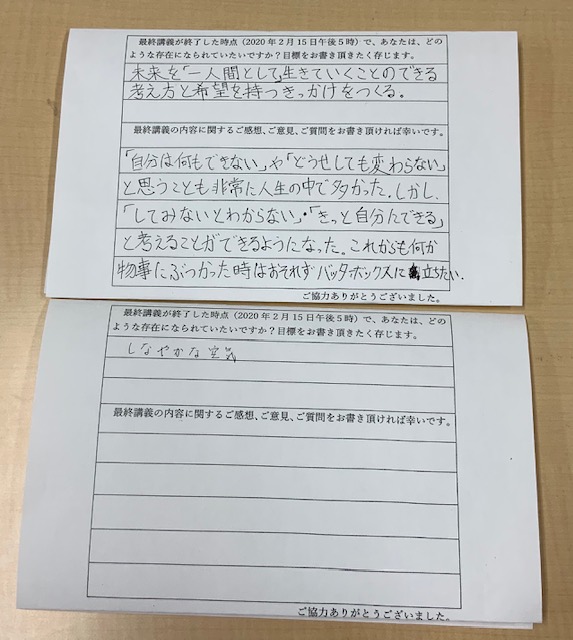 最終講義が終了した時点（2020年2月15日午後5時）で、あなたは、どの
ような存在になられていたいですか？目標をお書き頂きたく存じます。
未来を「一人間として」生きていくことのできる
考え方と希望を持つきっかけをつくる。
最終講義の内容に関するご感想、ご意見、ご質問をお書き頂ければ幸いです。
「自分は何もできない」や「どうせしても変わらない」
と思うことも非常に人生の中で多かった。しかし、
「してみないとわからない」・「きっと自分にできる」
と考えることができるようになった。これからも何か
物事にぶつかった時はおそれずバッターボックスに立ちたい。
ご協力ありがとうございました。
最終講義が終了した時点（2020年2月15日午後5時）で、あなたは、どの
ような存在になられていたいですか？目標をお書き頂きたく存じます。
しなやかな空気
最終講義の内容に関するご感想、ご意見、ご質問をお書き頂ければ幸いです。
ご協力ありがとうございました。